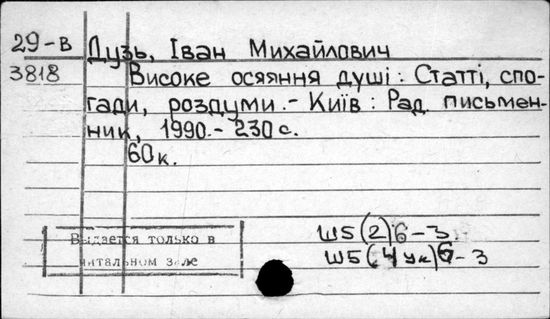 29-в Дузь, Іван Михайлович
3818 Високе осяяння душі : Статті, спо-
гади, роздуми. - Київ : Рад. письмен-
ник, 1990. - 230 с.
60 к.
Ш5(2)6-3
Ш5(4Ук)6-3
Выдается только в
читальном зале